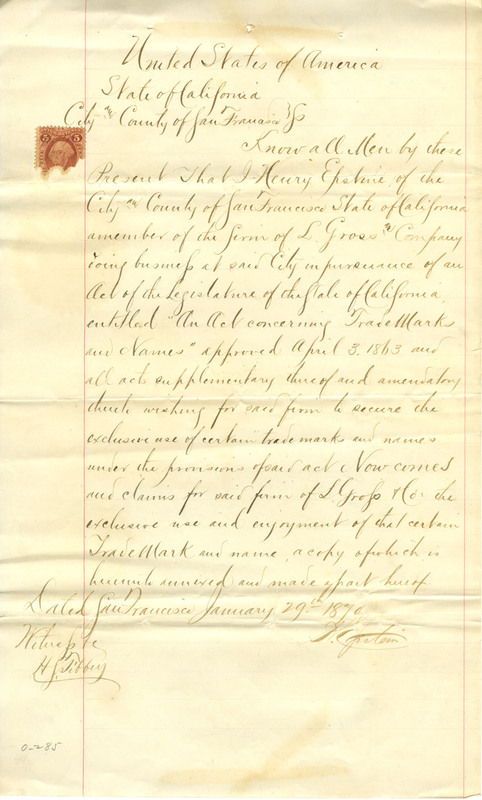 United States of America
State of California
City and County of San Francisco } ss
Know all Men by these
Present That I Henry Epstine, of the
City and County of San Francisco State of California
a member of the firm of L. Gross & Company
doing business at said City in pursuance of an
Act of the Legislature of the State of California
entitled "An Act concerning Trade Marks
and Names" approved April 3. 1863 and
all acts supplementary thereof and amendatory
thereto wishing for said firm to secure the
exclusive use of certain trade marks and names
under the provisions of said act Now comes
and claims for said firm of L. Gross & Co the
exclusive use and enjoyment of that certain
Trade Mark and name, a copy of which is
hereunto annexed and made a part hereof
Dated San Francisco January 29th 1870
Witness H. Epstein
H. J. Tibbey
0-285
5 5